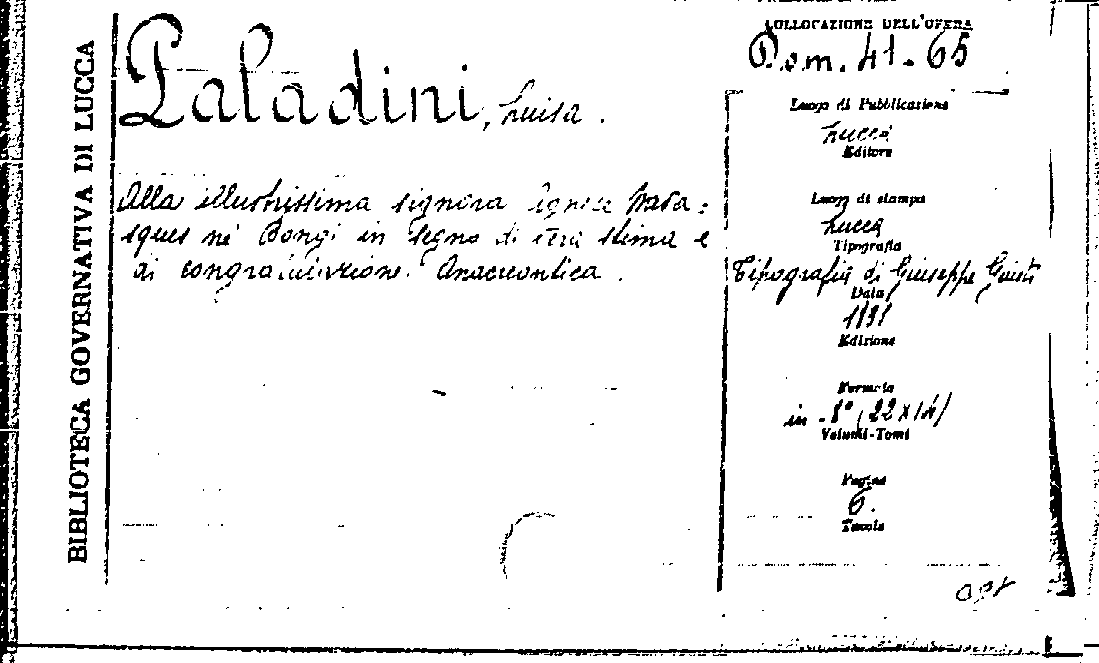 BIBLIOTECA GOVERNATIVA DI LUCCA
Paladini, Luisa.
Alla illustrissima signora Agnese
in segno di stima e
di congratulazione. Anacreontica.
COLLOCAZIONE DELL'OPERA
Dom. 41-65
Luogo di Pubblicazione
Lucca
Editore
Luogo di stampa
Lucca
Tipografia
Tipografia di Giuseppe Giusti
Data
Edizione
Formato
in -8° (22x14)
Volumi-Tomi
Pagine
6.
Tavole